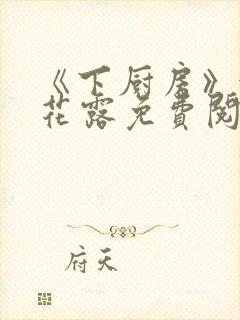 《下厨房》
花露免費閱
府天